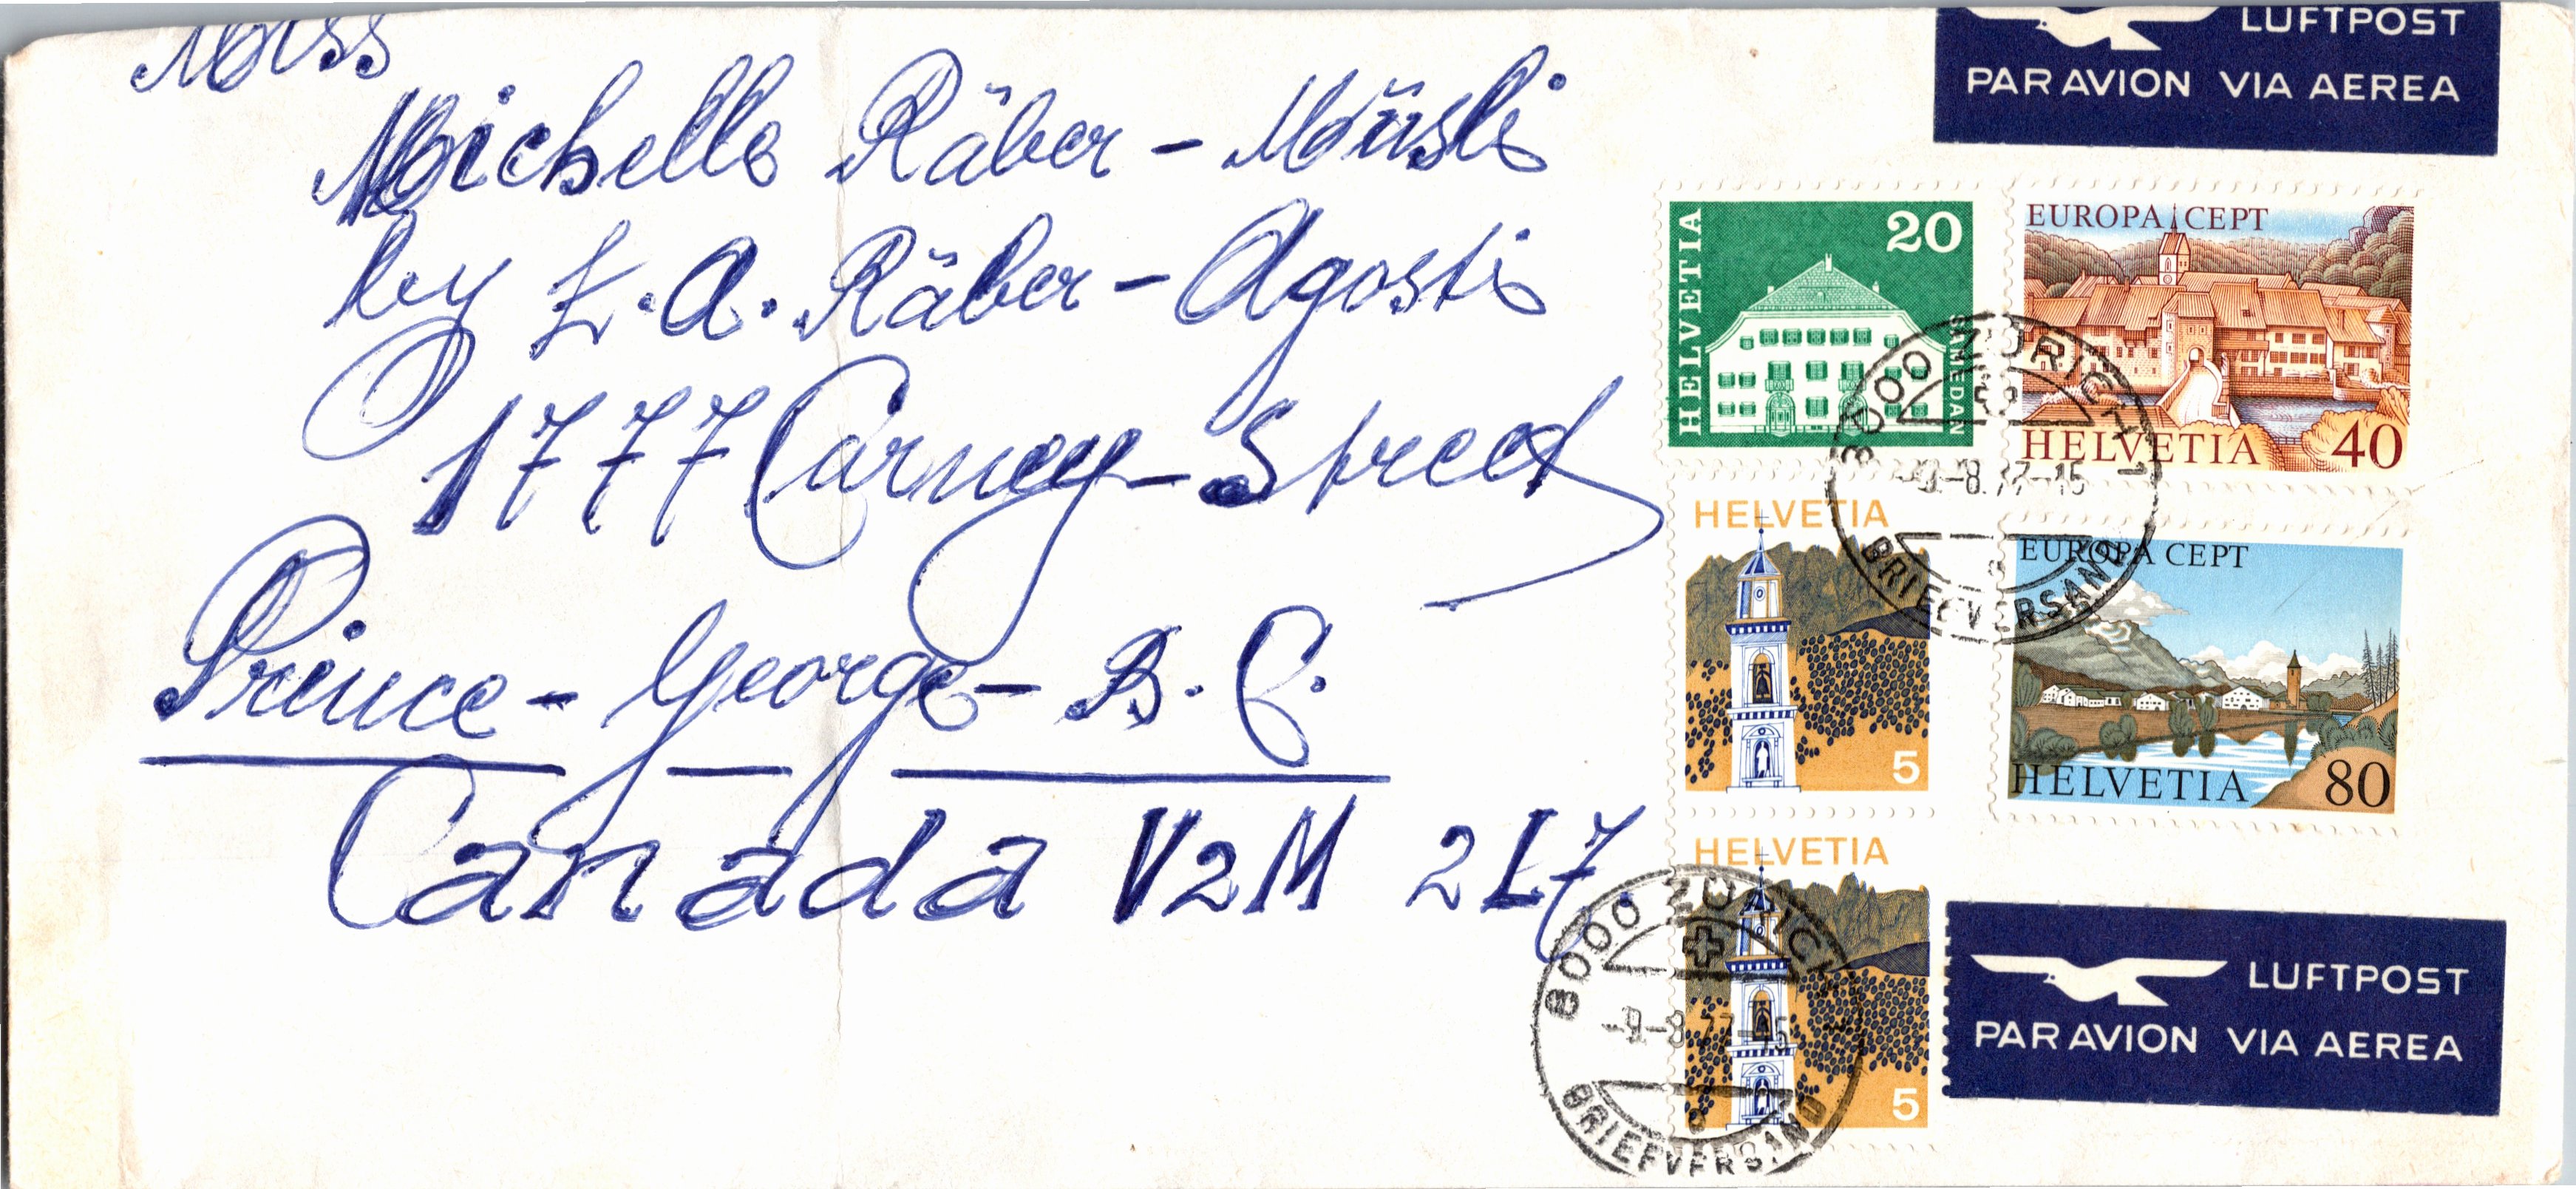 Miss
Michelle Räber - Müsli
by L. A. Räber - Agosti
1777 Carney - Street
Prince - George - B. C.
Canada V2M 2L7.
LUFTPOST
PAR AVION VIA AEREA
HELVETIA
20
SAMEDAN
EUROPA CEPT
HELVETIA 40
8000 ZÜRICH 1
-9.-8.77-15
BRIEFVERSAND
HELVETIA
5
EUROPA CEPT
HELVETIA 80
HELVETIA
5
8000 ZÜRICH 1
-9.-8.77-15
BRIEFVERSAND
LUFTPOST
PAR AVION VIA AEREA